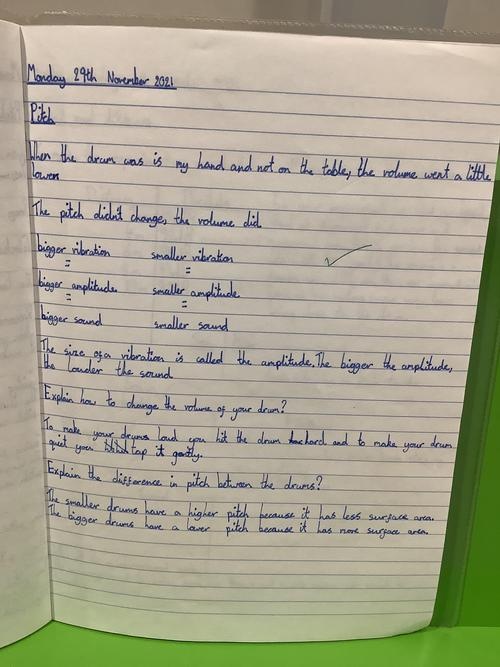 Monday 29th November 2021
Pitch
When the drum was is my hand and not on the table, the volume went a little
lower
The pitch didn't change, the volume did.
bigger vibration smaller vibration
= =
bigger amplitude smaller amplitude
= =
bigger sound smaller sound
The size of a vibration is called the amplitude. The bigger the amplitude,
the louder the sound
Explain how to change the volume of your drum?
To make your drums loud you hit the drum hard and to make your drum
quiet you tap it gently.
Explain the difference in pitch between the drums?
The smaller drums have a higher pitch because it has less surface area.
The bigger drums have a lower pitch because it has more surface area.